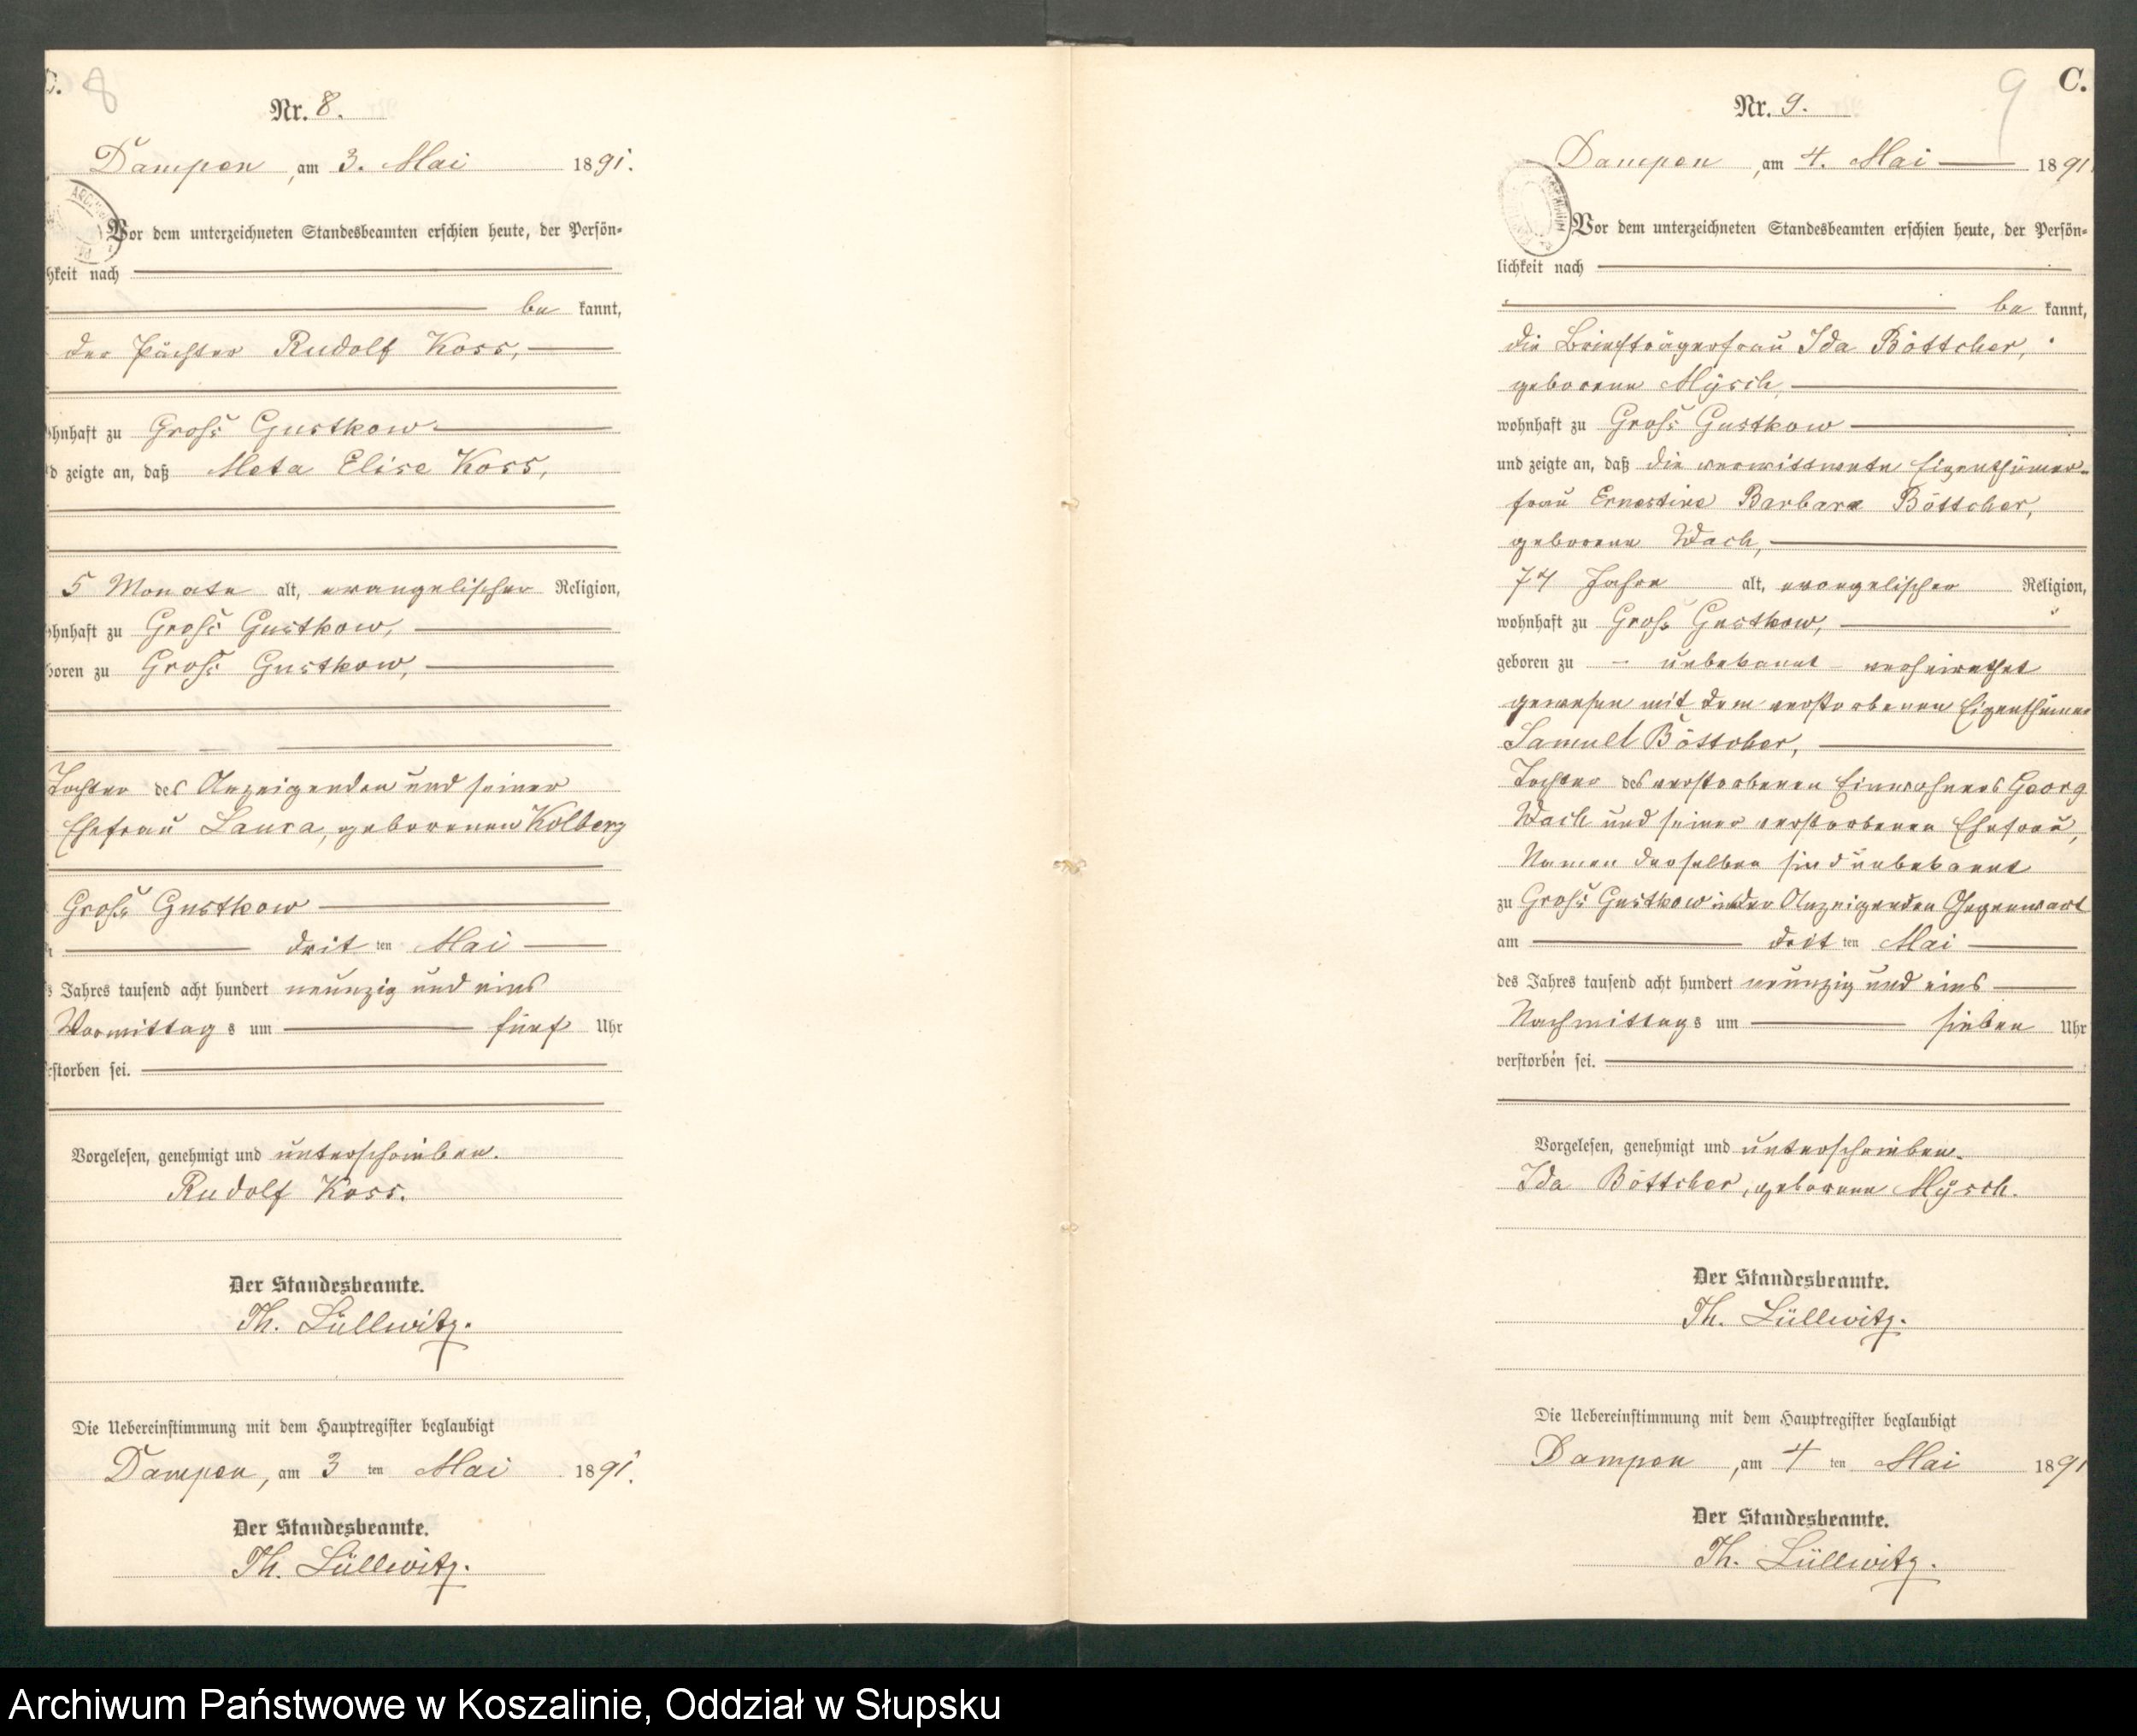 C. 8
Nr. 8.
Dampen, am 3. Mai 1891.
Vor dem unterzeichneten Standesbeamten erschien heute, der Persön-
hkeit nach
be kannt,
der Pächter Rudolf Koss,
ohnhaft zu Gross Gustkow
d zeigte an, daß Meta Elise Koss,
5 Monate alt, evangelischer Religion,
ohnhaft zu Gross Gustkow,
boren zu Gross Gustkow,
Tochter des Anzeigenden und seiner
Ehefrau Laura, geborenen Kolberg
Gross Gustkow
drit ten Mai
s Jahres tausend acht hundert neunzig und eins
Vormittag s um fünf Uhr
rstorben sei.
Vorgelesen, genehmigt und unterschrieben.
Rudolf Koss.
Der Standesbeamte.
Th. Lüllwitz.
Die Uebereinstimmung mit dem Hauptregister beglaubigt
Dampen, am 3 ten Mai 1891.
Der Standesbeamte.
Th. Lüllwitz.
9 C.
Nr. 9.
Dampen, am 4. Mai 1891.
Vor dem unterzeichneten Standesbeamten erschien heute, der Persön-
lichkeit nach
be kannt,
die Briefträgerfrau Ida Böttcher,
geborene Mÿsch,
wohnhaft zu Gross Gustkow
und zeigte an, daß die verwittwete Eigenthümer-
frau Ernestine Barbara Böttcher,
geborene Wach,
74 Jahre alt, evangelischer Religion,
wohnhaft zu Gross Gustkow,
geboren zu - unbekannt - verheirathet
gewesen mit dem verstorbenen Eigenthümer
Samuel Böttcher,
Tochter des verstorbenen Einwohners Georg
Wach und seiner verstorbenen Ehefrau,
Namen derselben sind unbekannt
zu Gross Gustkow in der Anzeigenden Gegenwart
am drit ten Mai
des Jahres tausend acht hundert neunzig und eins
Nachmittags um sieben Uhr
verstorben sei.
Vorgelesen, genehmigt und unterschrieben.
Ida Böttcher, geborene Mÿsch.
Der Standesbeamte.
Th. Lüllwitz.
Die Uebereinstimmung mit dem Hauptregister beglaubigt
Dampen, am 4 ten Mai 1891
Der Standesbeamte.
Th. Lüllwitz.
Archiwum Państwowe w Koszalinie, Oddział w Słupsku